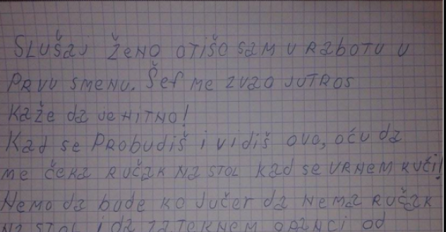 SLUŠAJ ŽENO OTIŠO SAM U RABOTU U
PRVU SMENU. ŠEF ME ZVAO JUTROS
KAŽE DA JE HITNO!
KAD SE PROBUDIŠ I VIDIŠ OVO, OĆU DA
ME ČEKA RUČAK NA STOL KAD SE VRNEM KUĆI!
NEMO DA BUDE KO JUČER DA NEMA RUČAK
NA STOL I DA ZATEKNEM OPANCI OD